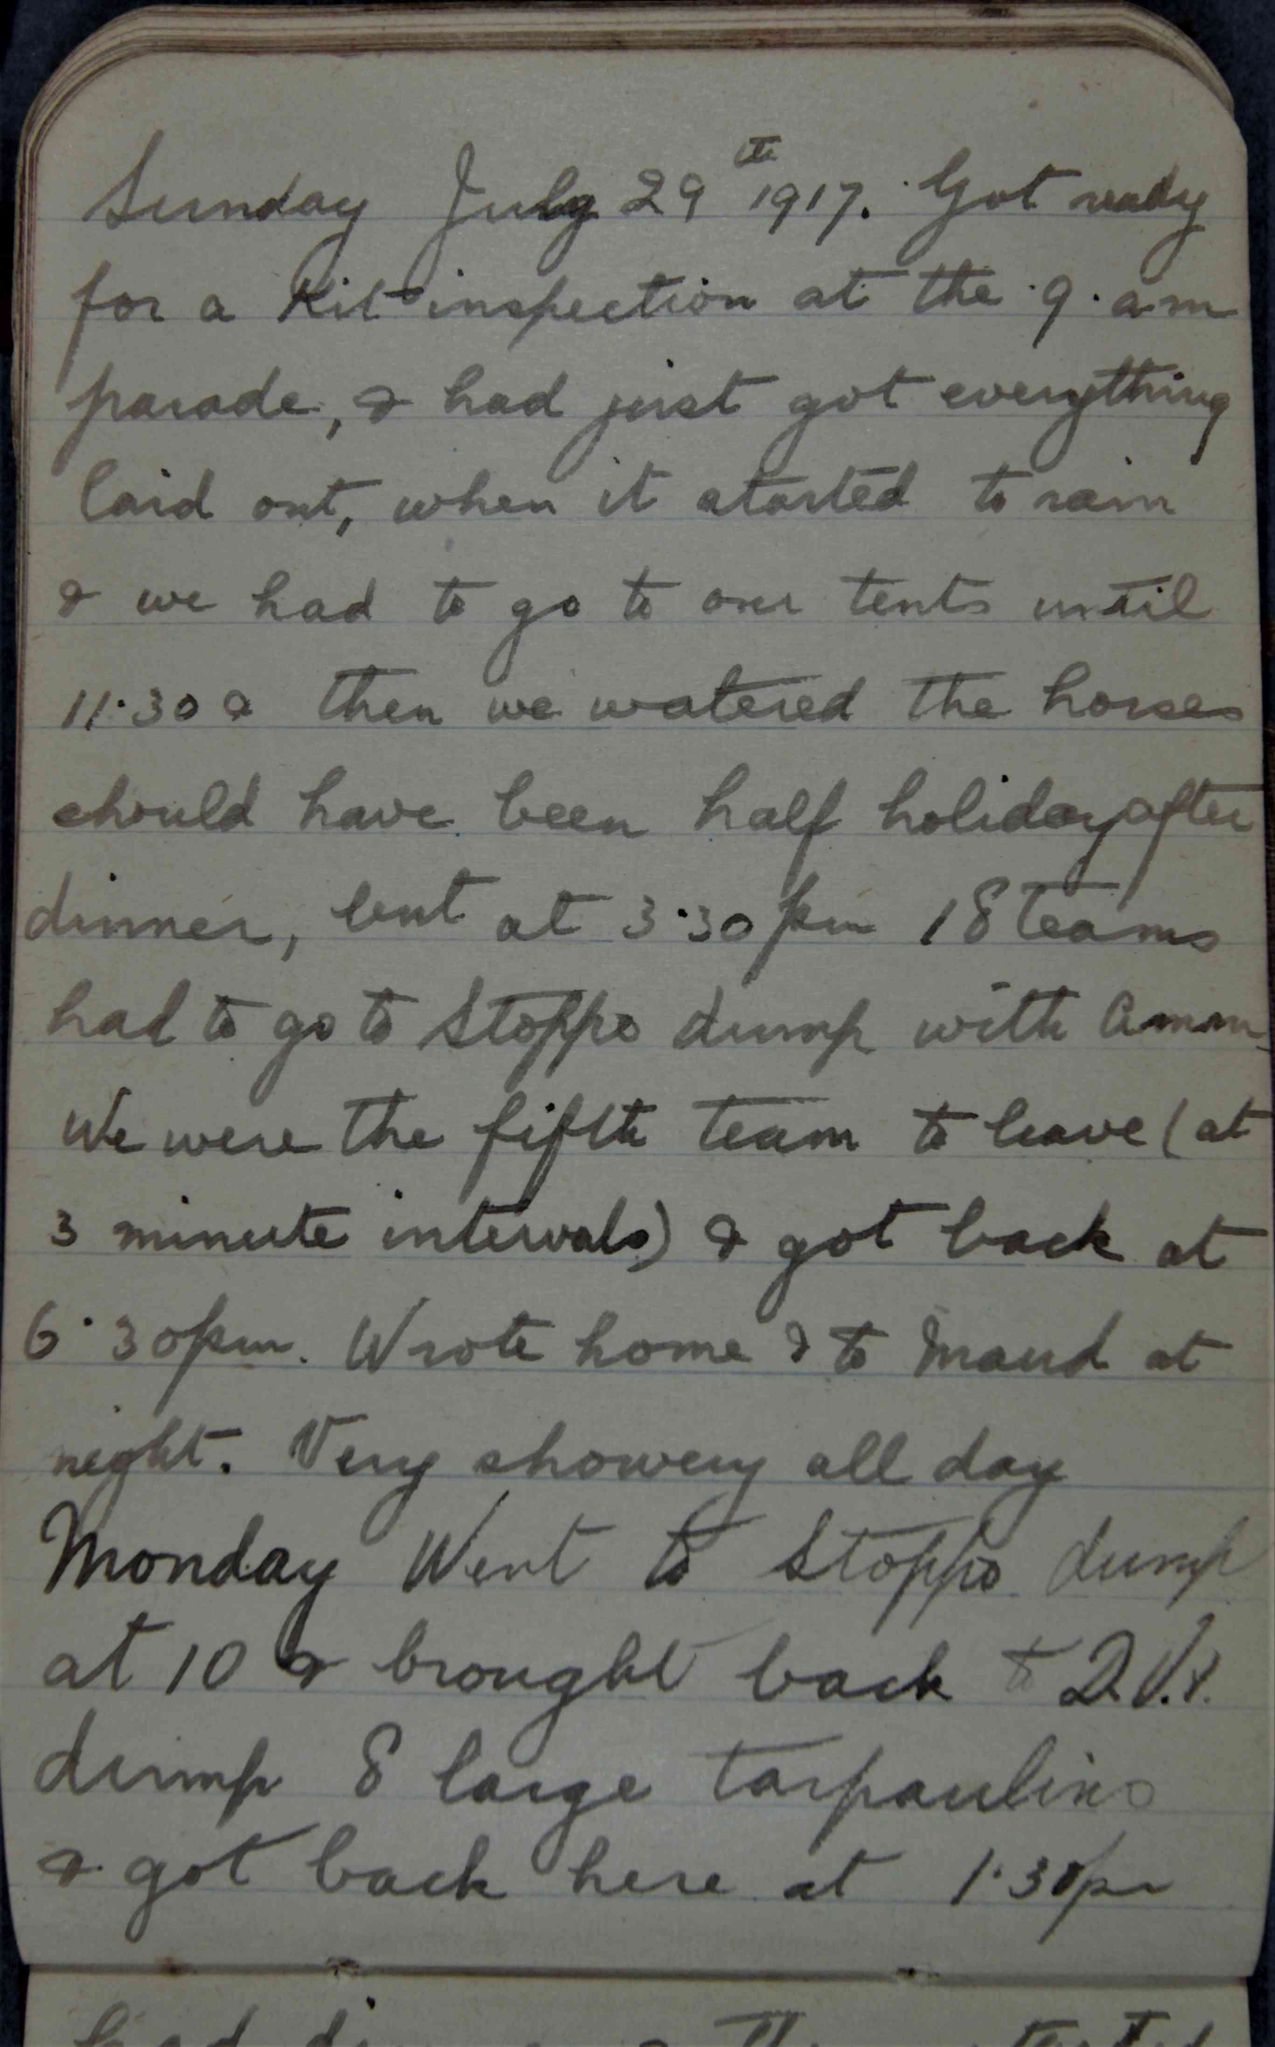 Sunday July 29th 1917. Got ready
for a Kit inspection at the 9. a.m
parade, & had just got everything
laid out, when it started to rain
& we had to go to our tents until
11.30 & then we watered the horses
should have been half holiday after
dinner, but at 3.30 pm 18 teams
had to go to Stopps dump with Amm.
We were the fifth team to leave (at
3 minute intervals) & got back at
6.30 pm. Wrote home & to Maud at
night. Very showery all day
Monday Went to Stopps dump
at 10 & brought back to
dump 8 large tarpaulins
& got back here at 1.30 pm